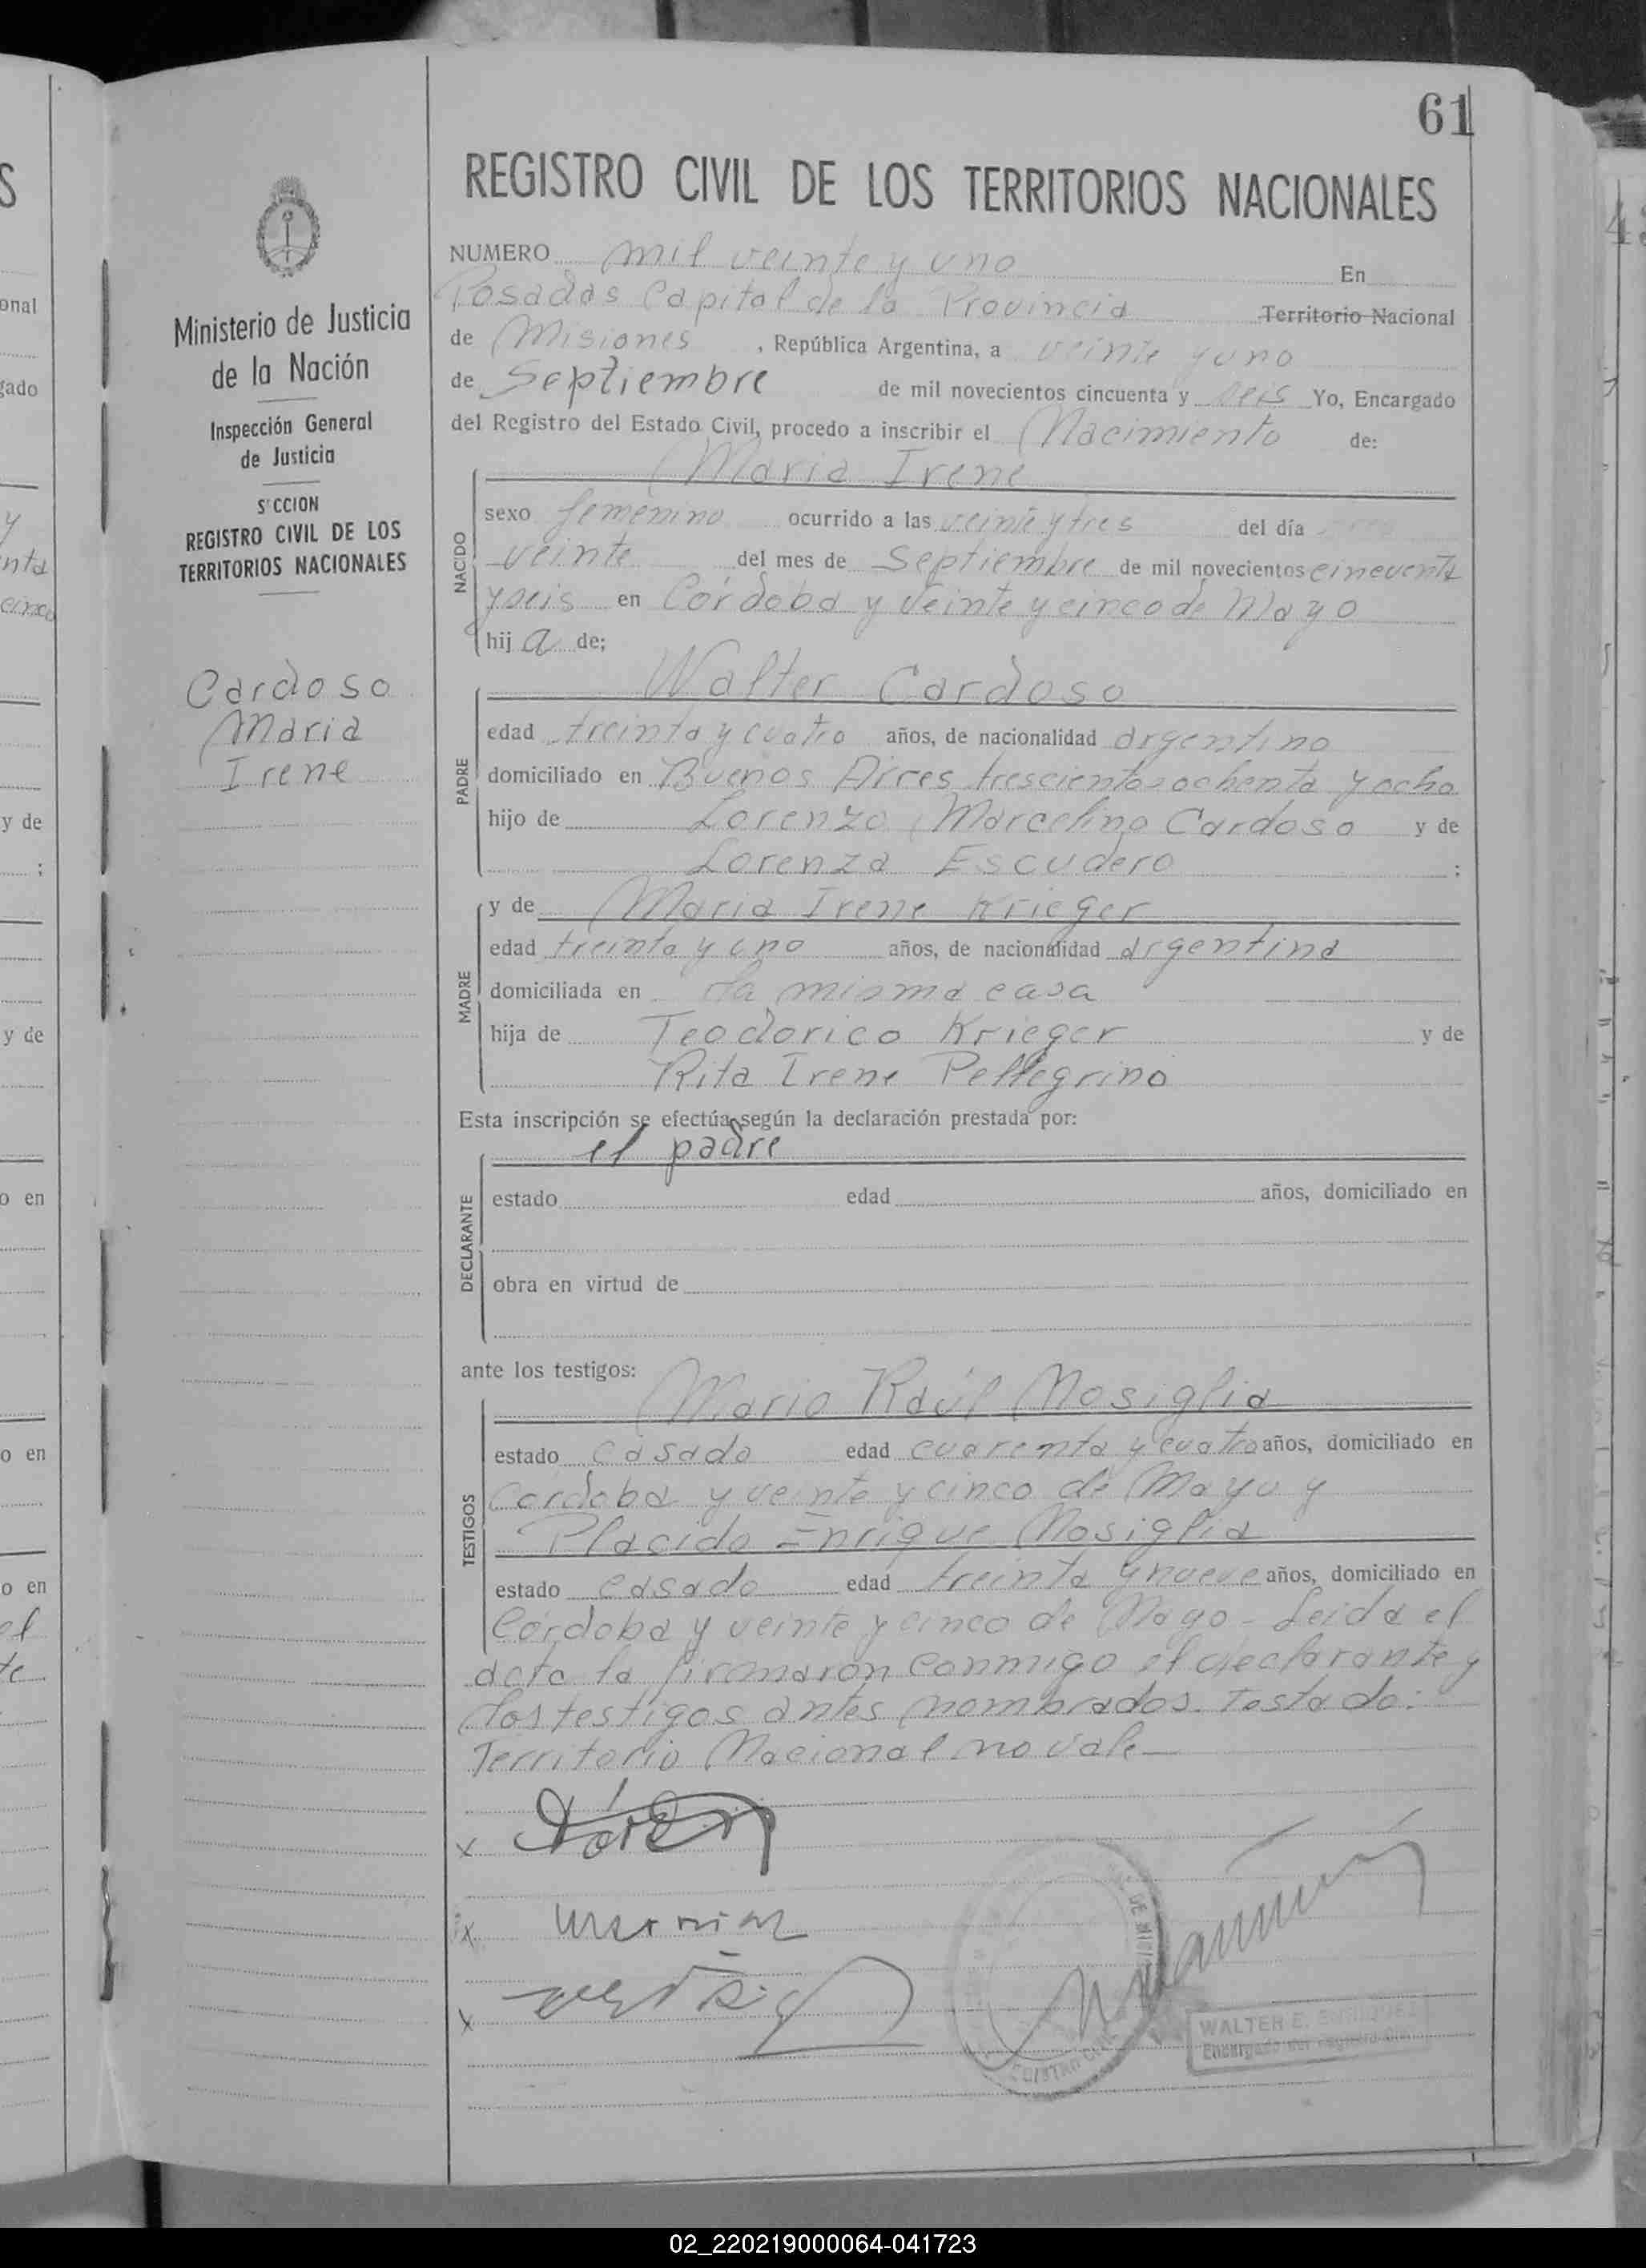 61
REGISTRO CIVIL DE LOS TERRITORIOS NACIONALES
Ministerio de Justicia
de la Nación
Inspección General
de Justicia
S CCION
REGISTRO CIVIL DE LOS
TERRITORIOS NACIONALES
Cardoso
Maria
Irene
NUMERO mil veinte y uno En
Posadas Capital de la Provincia Territorio Nacional
de Misiones, República Argentina, a veinte y uno
de Septiembre de mil novecientos cincuenta y seis Yo, Encargado
del Registro del Estado Civil, procedo a inscribir el Nacimiento de:
Maria Irene
NACIDO
sexo femenino ocurrido a las veinte y tres del día
veinte del mes de Septiembre de mil novecientos cincuenta
y seis en Córdoba y Veinte y cinco de Mayo
hij a de;
Walter Cardoso
PADRE
edad treinta y cuatro años, de nacionalidad argentino
domiciliado en Buenos Aires trescientos ochenta y ocho
hijo de Lorenzo Marcelino Cardoso y de
Lorenza Escudero ;
y de Maria Irene Krieger
MADRE
edad treinta y uno años, de nacionalidad argentina
domiciliada en la misma casa
hija de Teodorico Krieger y de
Rita Irene Pellegrino
Esta inscripción se efectúa según la declaración prestada por:
el padre
DECLARANTE
estado edad años, domiciliado en
obra en virtud de
ante los testigos:
Mario Raúl Mosiglia
TESTIGOS
estado casado edad cuarenta y cuatro años, domiciliado en
Cordoba y veinte y cinco de Mayo y
Placido Enrique Mosiglia
estado casado edad treinta y nueve años, domiciliado en
Córdoba y veinte y cinco de Mayo - Leida el
acta la firmaron conmigo el declarante y
los testigos antes nombrados. Testado:
Territorio Nacional no vale
x
x
x
WALTER E.
Encargado del registro
02_220219000064-041723